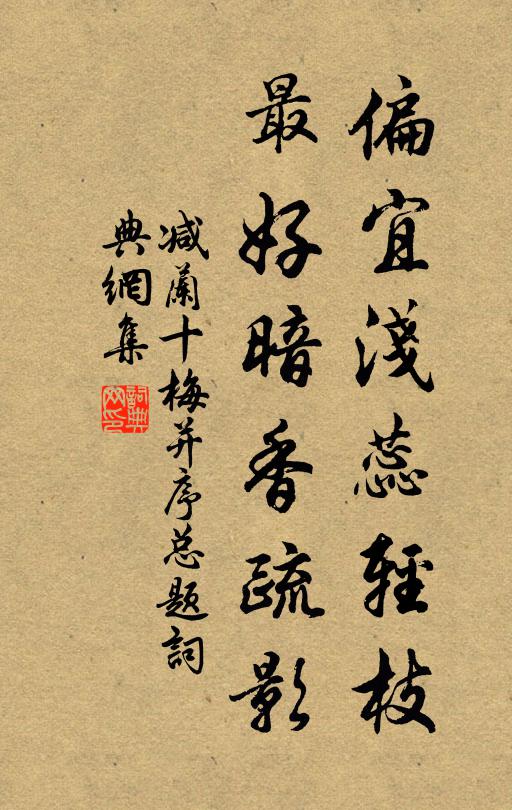 偏宜淺蕊輕枝
最好暗香疏影
减蘭十梅并序总题詞
典網集
詞典网印